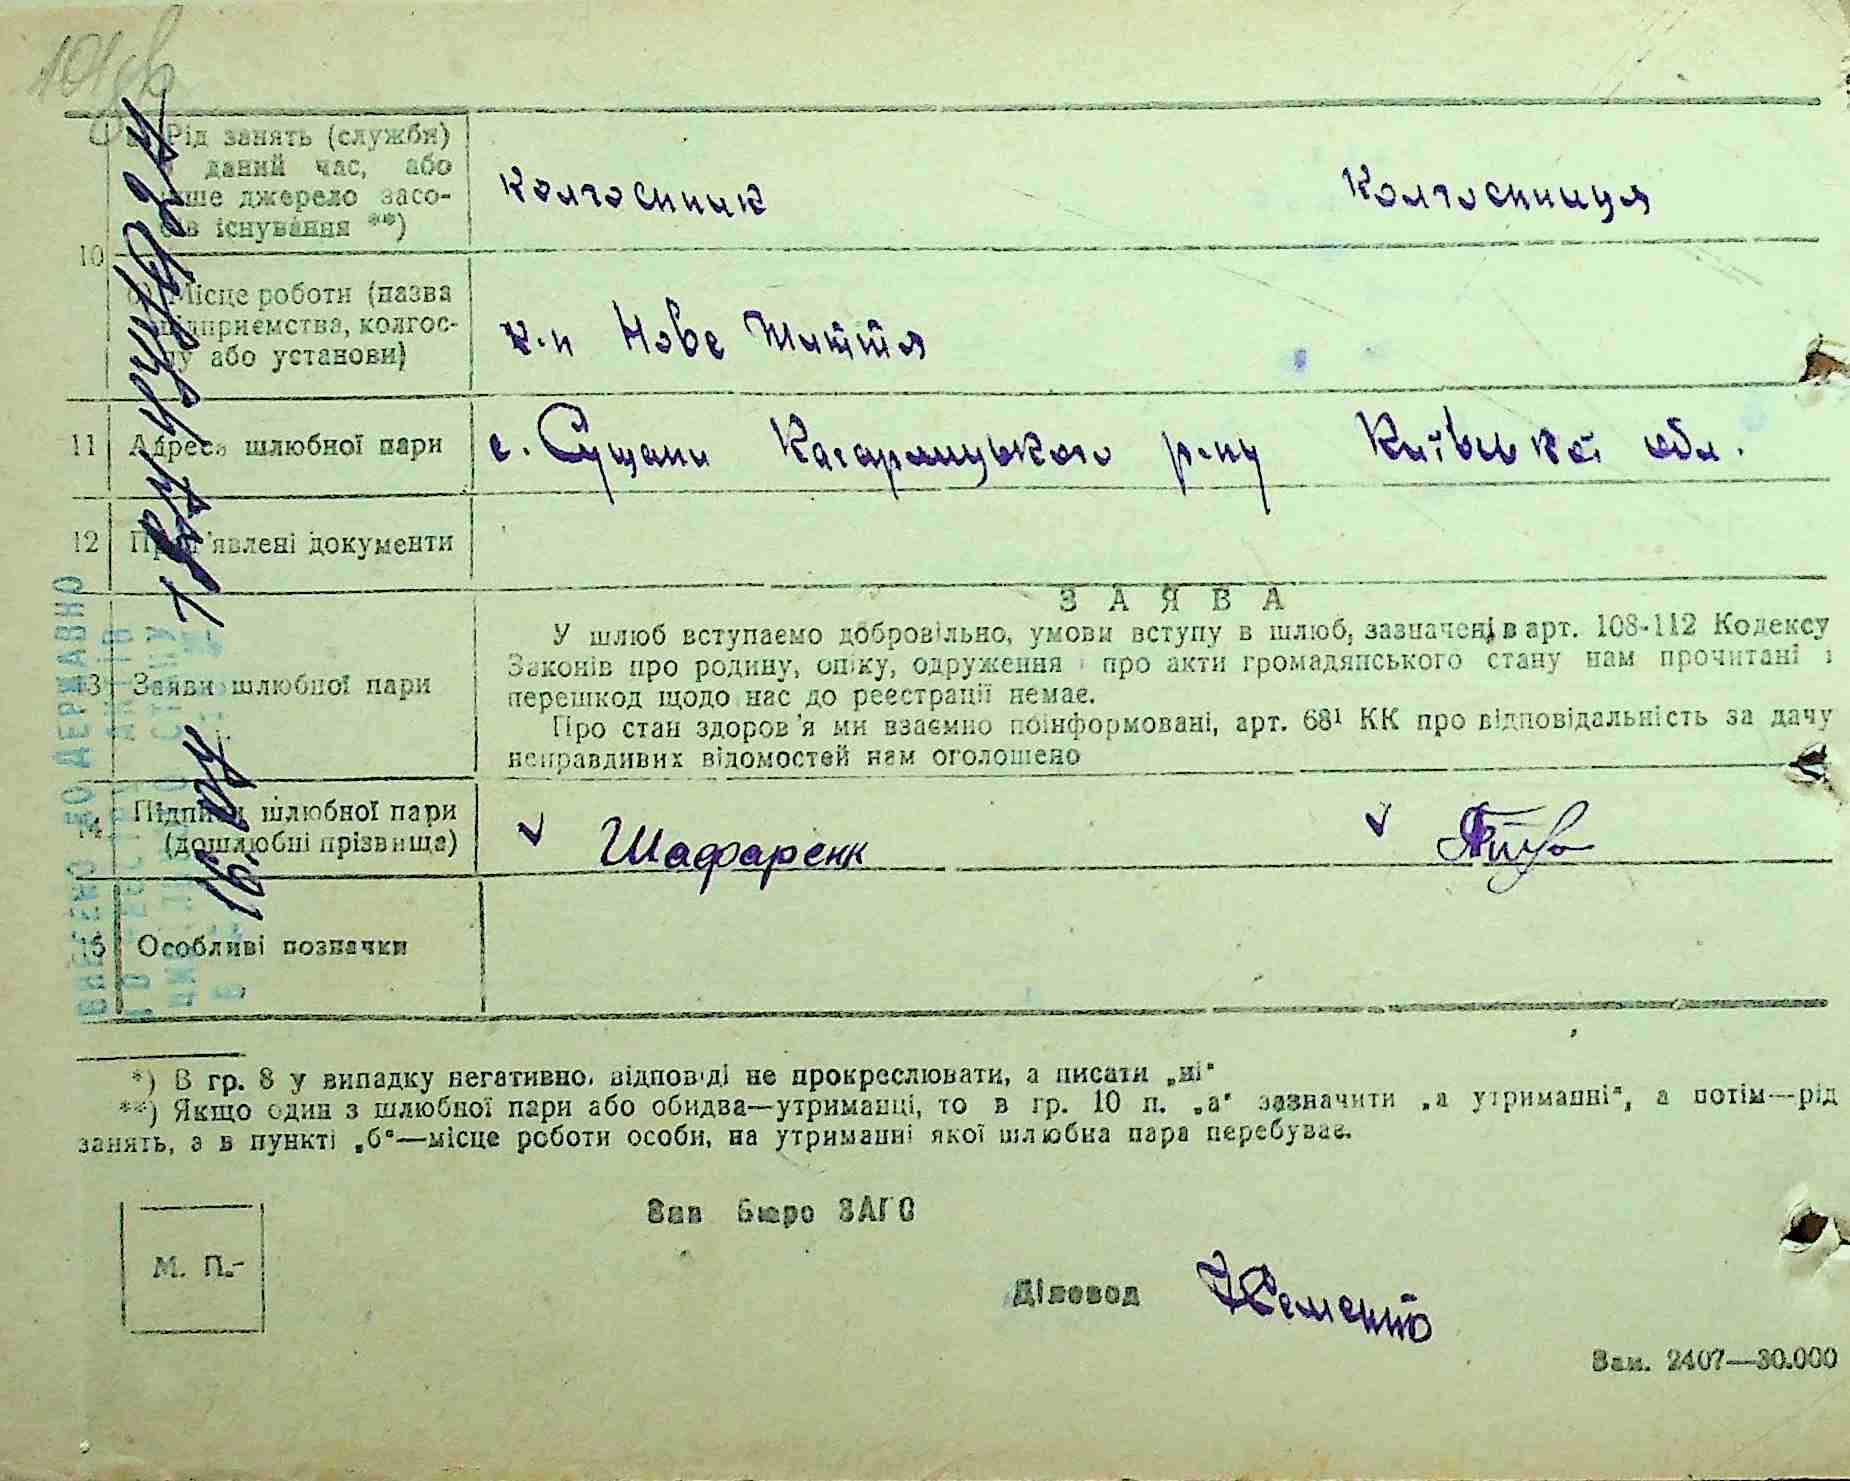 а) Рід занять (служби)
даний час, або
інше джерело засо-
бів існування **)
колгоспник колгоспниця
10
б) Місце роботи (назва
підприємства, колгос-
пу або установи)
к-п Нове Життя
11 Адреса шлюбної пари с. Сущани Кагарлицького р-ну Київської обл.
12 Пред'явлені документи
ЗАЯВА
13 Заяви шлюбної пари
У шлюб вступаємо добровільно, умови вступу в шлюб, зазначені в арт. 108-112 Кодексу
Законів про родину, опіку, одруження і про акти громадянського стану нам прочитані і
перешкод щодо нас до реєстрації немає.
Про стан здоров'я ми взаємно поінформовані, арт. 68¹ КК про відповідальність за дачу
неправдивих відомостей нам оголошено
14 Підписи шлюбної пари
(дошлюбні прізвища)
Шафаренк
15 Особливі позначки
ВНЕСЕНО ДО ДЕРЖАВНО
*) В гр. 8 у випадку негативно, відповіді не прокреслювати, а писати „ні“
**) Якщо один з шлюбної пари або обидва—утриманці, то в гр. 10 п. „а“ зазначити „а утриманні“, а потім—рід
занять, а в пункті „б“—місце роботи особи, на утриманні якої шлюбна пара перебуває.
Зав бюро ЗАГС
М. П.-
Діловод
Зам. 2407—30.000